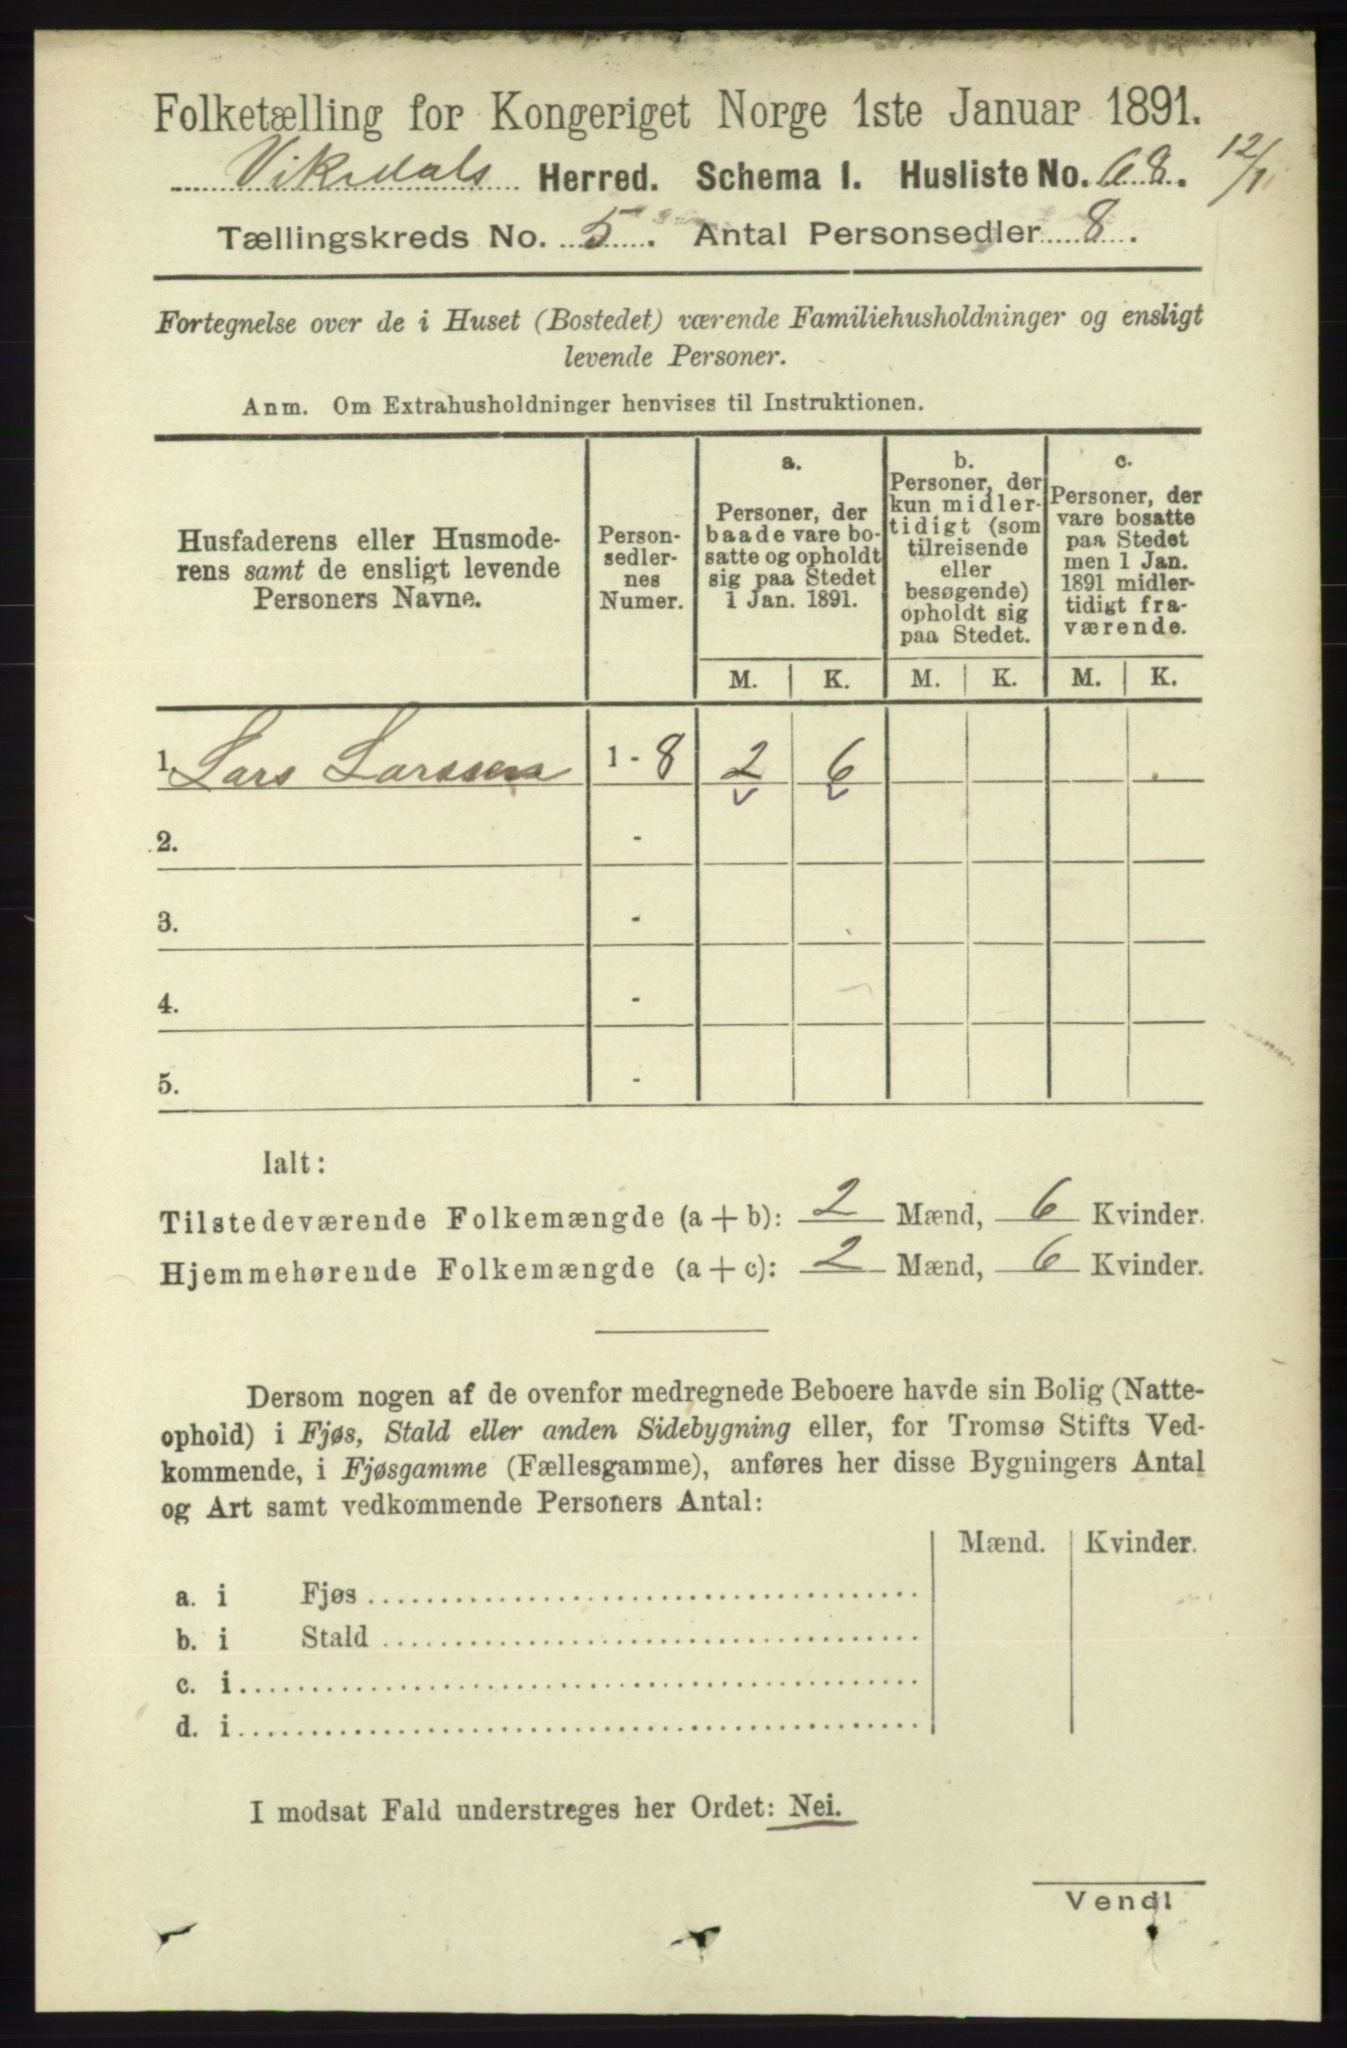 Folketælling for Kongeriget Norge 1ste Januar 1891.
Vikedals Herred. Schema I. Husliste No. 68. 12/1
Tællingskreds No. 5. Antal Personsedler 8.
Fortegnelse over de i Huset (Bostedet) værende Familiehusholdninger og ensligt
levende Personer.
Anm. Om Extrahusholdninger henvises til Instruktionen.
Husfaderens eller Husmode-
rens samt de ensligt levende
Personers Navne.
Person-
sedler-
nes
Numer.
a.
Personer, der
baade vare bo-
satte og opholdt
sig paa Stedet
1 Jan. 1891.
b.
Personer, der
kun midler-
tidigt (som
tilreisende
eller
besøgende)
opholdt sig
paa Stedet.
c.
Personer, der
vare bosatte
paa Stedet
men 1 Jan.
1891 midler-
tidigt fra-
værende.
M. K. M. K. M. K.
1. Lars Larssen 1 - 8 2 6
2. -
3. -
4. -
5. -
Ialt:
Tilstedeværende Folkemængde (a + b): 2 Mænd, 6 Kvinder.
Hjemmehørende Folkemængde (a + c): 2 Mænd, 6 Kvinder.
Dersom nogen af de ovenfor medregnede Beboere havde sin Bolig (Natte-
ophold) i Fjøs, Stald eller anden Sidebygning eller, for Tromsø Stifts Ved-
kommende, i Fjøsgamme (Fællesgamme), anføres her disse Bygningers Antal
og Art samt vedkommende Personers Antal:
Mænd. Kvinder.
a. i Fjøs
b. i Stald
c. i
d. i
I modsat Fald understreges her Ordet: Nei.
Vend!